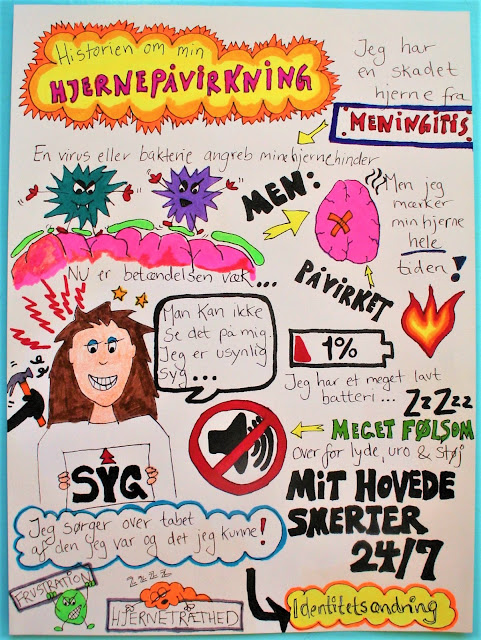 Historien om min
HJERNEPÅVIRKNING
Jeg har
en skadet
hjerne fra
MENINGITIS
En virus eller bakterie angreb mine hjernehinder
MEN:
Men jeg
mærker
min hjerne
hele
tiden!
PÅVIRKET
Nu er betændelsen væk...
Man kan ikke
se det på mig.
Jeg er usynlig
syg...
1%
Jeg har et meget lavt
batteri...
ZZZZZ
MEGET FØLSOM
Over for lyde, uro & støj
SYG
MIT HOVEDE
SMERTER
24/7
Jeg sørger over tabet
af den jeg var og det jeg kunne!
FRUSTRATION
ZZZZ
HJERNETRÆTHED
Identitetsændring